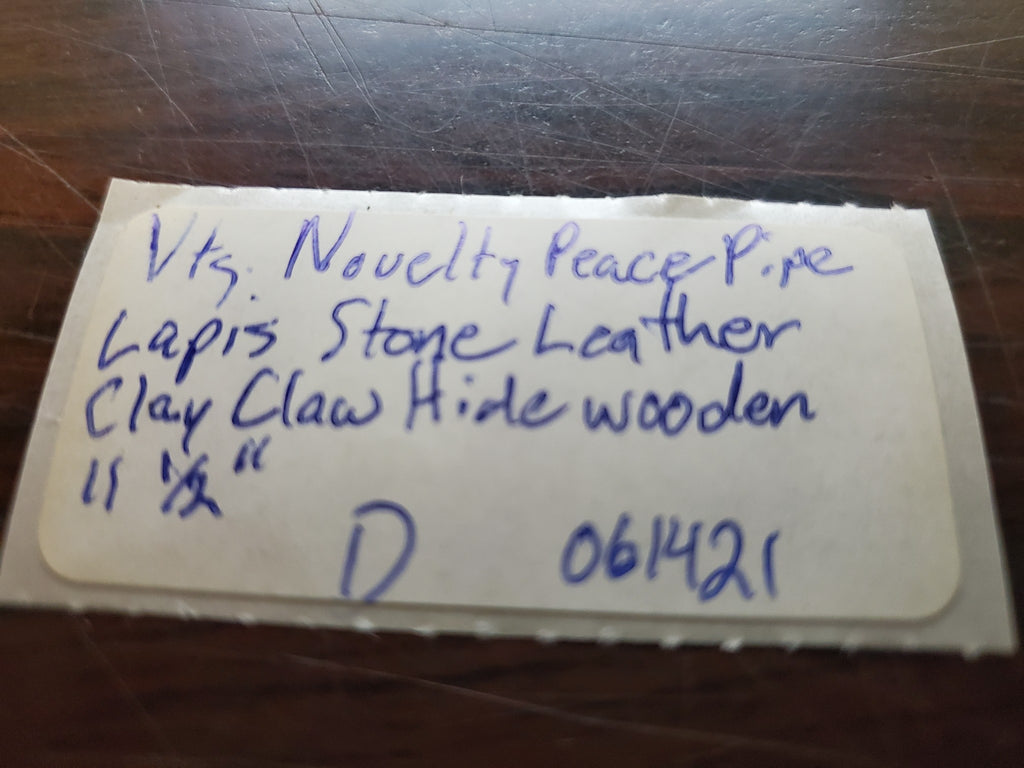 Vtg. Novelty Peace Pipe
Lapis Stone Leather
Clay Claw Hide wooden
11 1/2"
D 061421